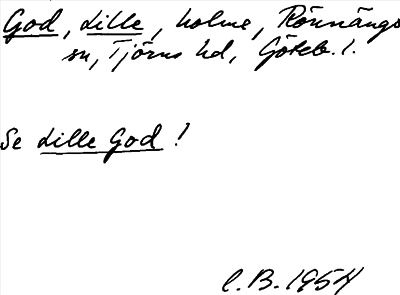 God, Lille, holme, Rönnängs
sn, Tjörns hd, Göteb. l.
Se Lille God!
C.B. 1954